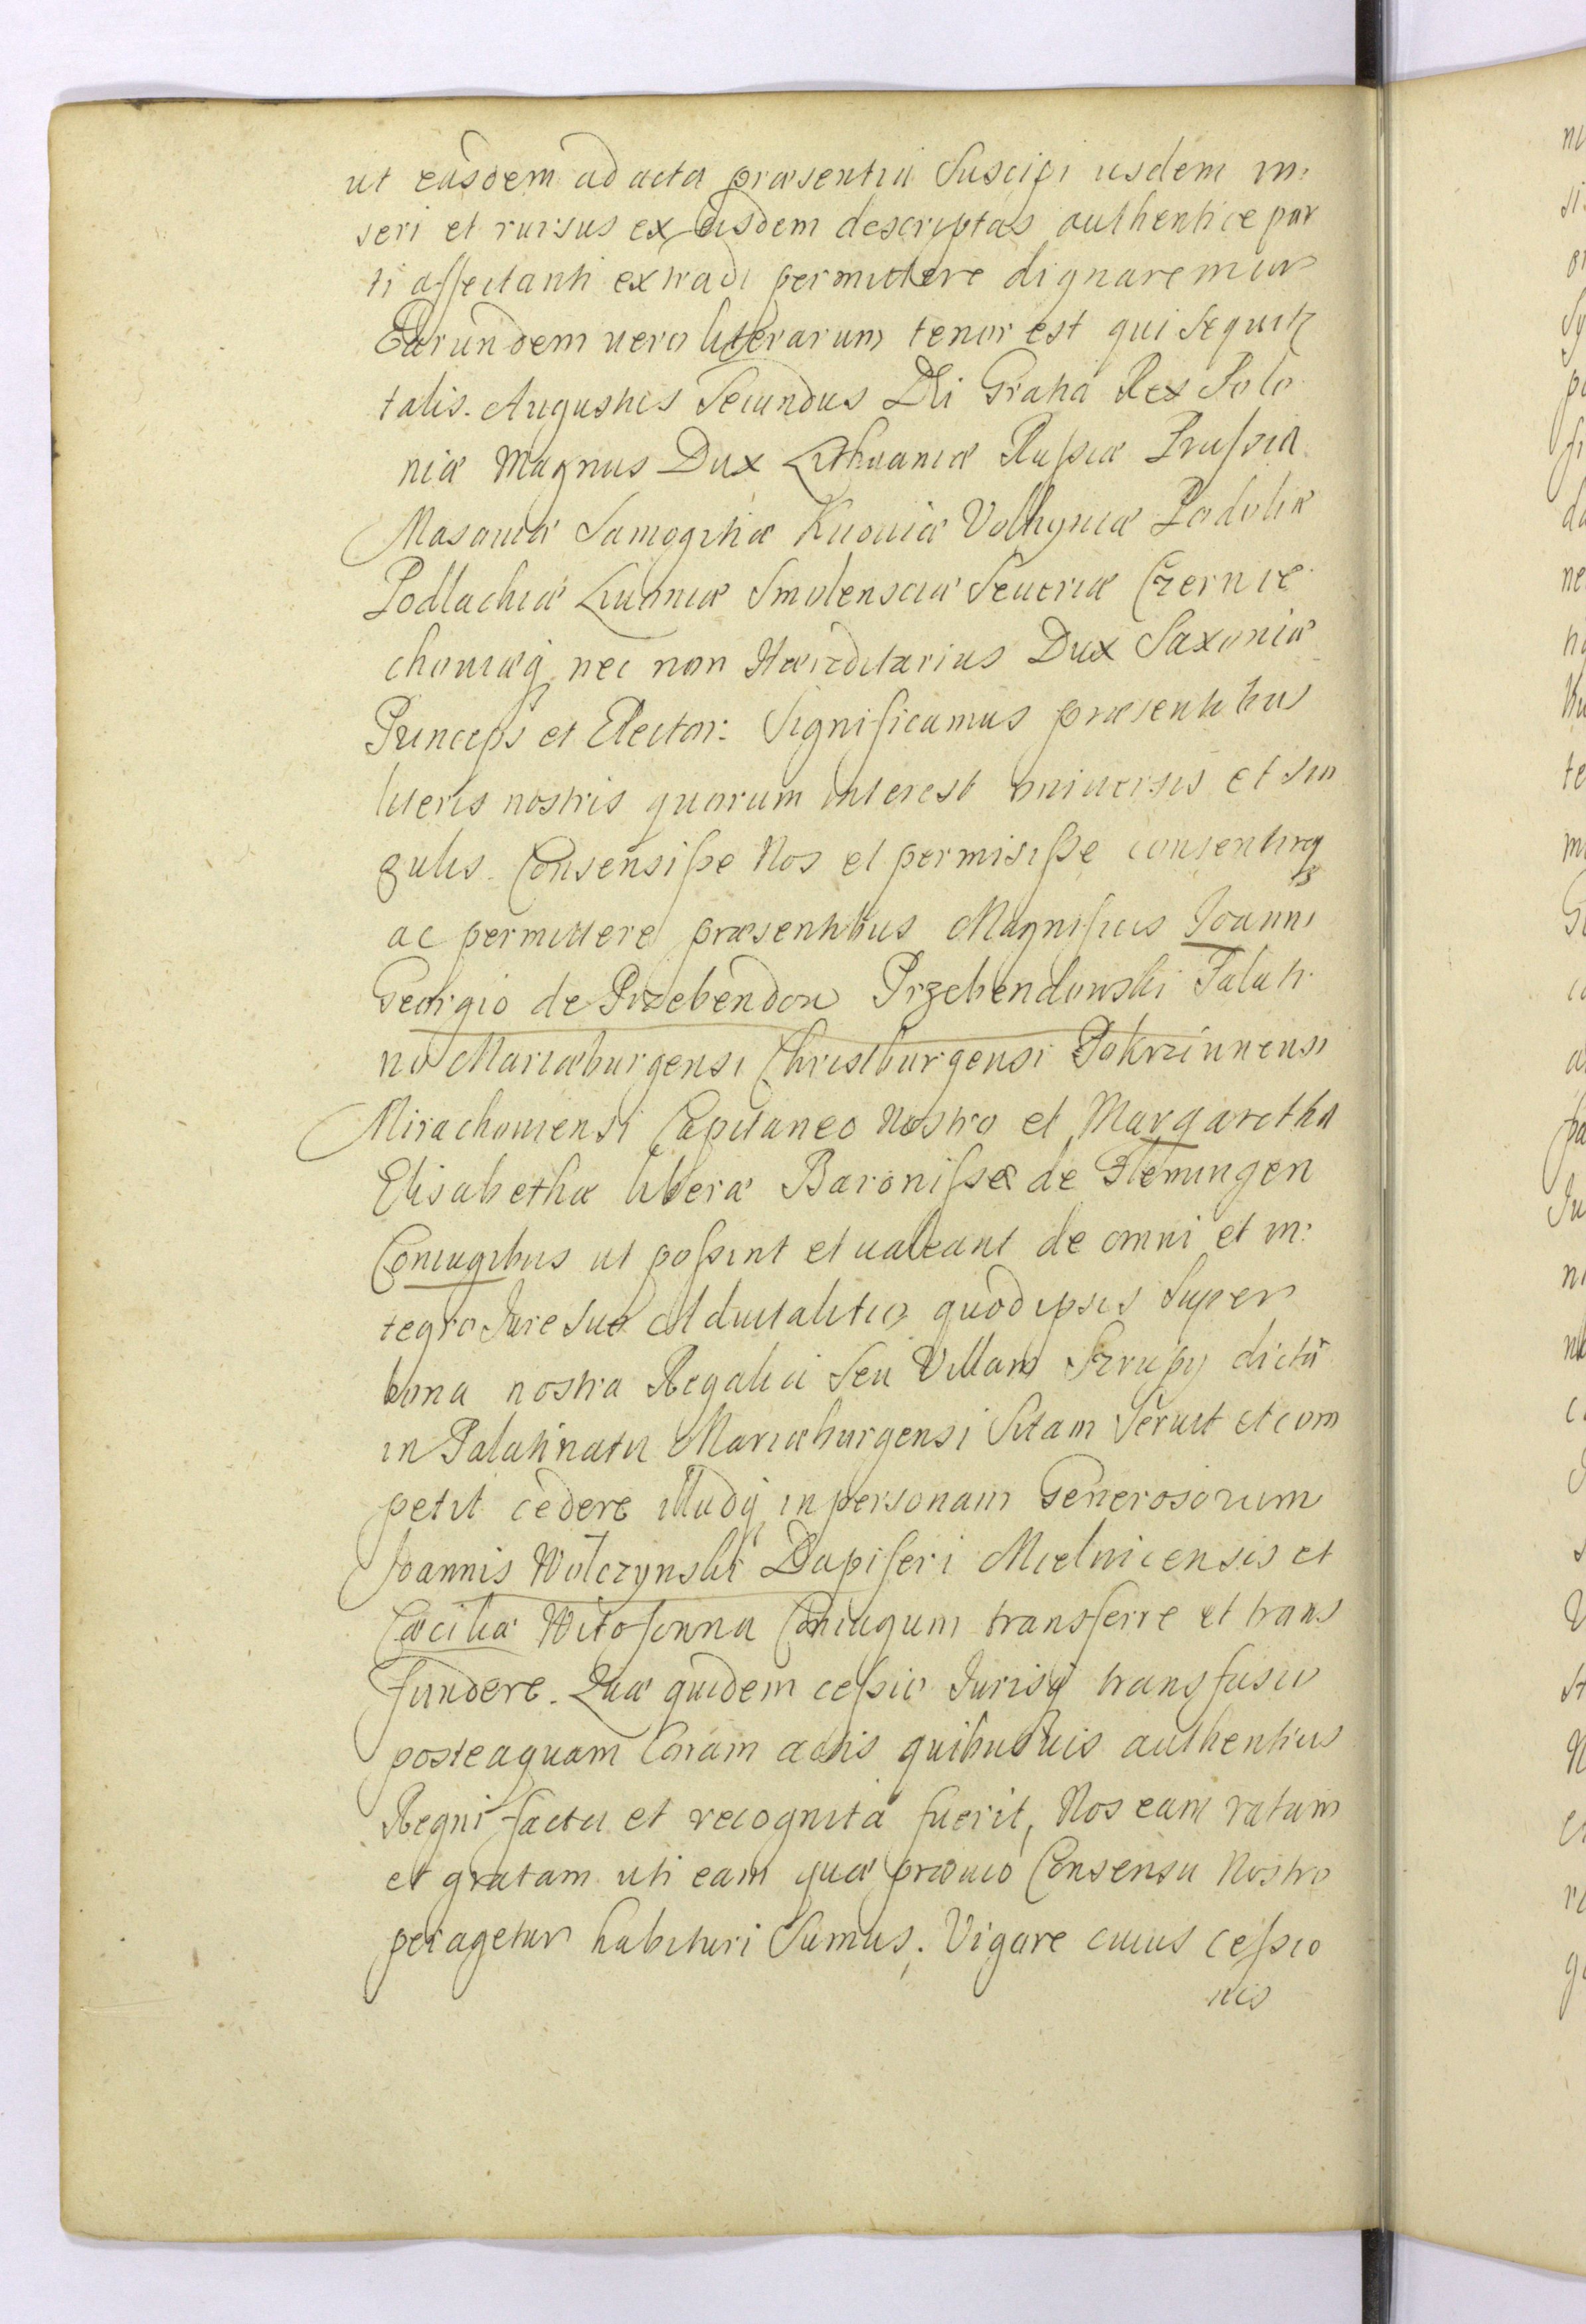 ut easdem ad acta præsentia Suscipi iisdem in:
seri et rursus ex eisdem descriptas authentice par
ti affectanti extradi permittere dignaremur
Earundem vero literarum tenor est qui sequitr
talis. Augustus Secundus Dei Gratia Rex Polo
niæ Magnus Dux Lithuaniæ Russiæ Prussiæ
Masoviæ Samogitiæ Kijoviæ Volhyniæ Podoliæ
Podlachiæ Livoniæ Smolensciæ Severiæ Czernie
choviæq nec non Hæreditarius Dux Saxoniæ
Princeps et Elector: Significamus præsentibus
literis nostris quorum interest universis et sin
gulis. Consensisse Nos et permisisse consentireq
ac permittere præsentibus Magnificis Joanni
Georgio de Przebendow Przebendowski Palati
no Mariæburgensi Christburgensi Tokrzinnensi
Mirachoviensi Capitaneo Nostro et Margaretha
Elisabethæ liberæ Baronissæ de Flemingen
Coniugibus ut possint et valeant de omni et in:
tegro Jure suo advitalitio quod ipsis super
bona nostra Regalia seu Villam Szrupy dictã
in Palatinatu Mariæburgensi Sitam Servit et com
petit cedere illudq in personam Generosorum
Joannis Wolczynski Dapiferi Mielnicensis et
Cæciliæ Witosønna Coniugum transferre et trans
fundere. Quæ quidem cessio Jurisq transfusio
posteaquam Coram actis quibusvis authenticis
Regni facta et recognita fuerit, Nos eam ratam
et gratam uti eam quæ prævio Consensu Nostro
peragetur habituri Sumus. Vigore cuius cessio
nis